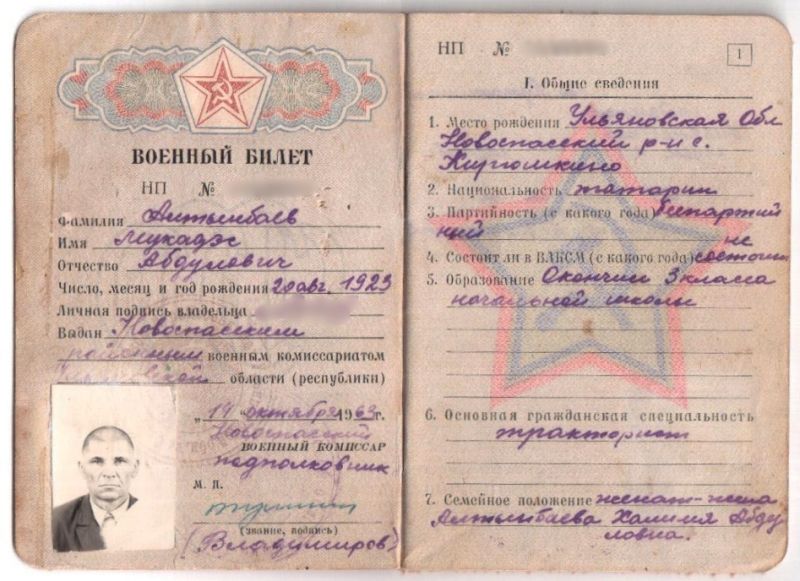 ВОЕННЫЙ БИЛЕТ
НП №
Фамилия Алтынбаев
Имя Мукадэс
Отчество Абдулович
Число, месяц и год рождения 20 авг. 1923
Личная подпись владельца
Выдан Новоспасским
районным военным комиссариатом
Ульяновской области (республики)
„14" октября 1963 г.
Новоспасский
ВОЕННЫЙ КОМИССАР
подполковник
М. П.
(звание, подпись)
(Владимиров)
НП №
1
I. Общие сведения
1. Место рождения Ульяновская Обл
Новоспасский р-н с.
2. Национальность татарин
3. Партийность (с какого года) беспартий
ный
4. Состоит ли в ВЛКСМ (с какого года) не состоит
5. Образование Окончил 3 класса
начальной школы
6. Основная гражданская специальность
тракторист
7. Семейное положение женат-жена
Алтынбаева Халия Абду
ловна.